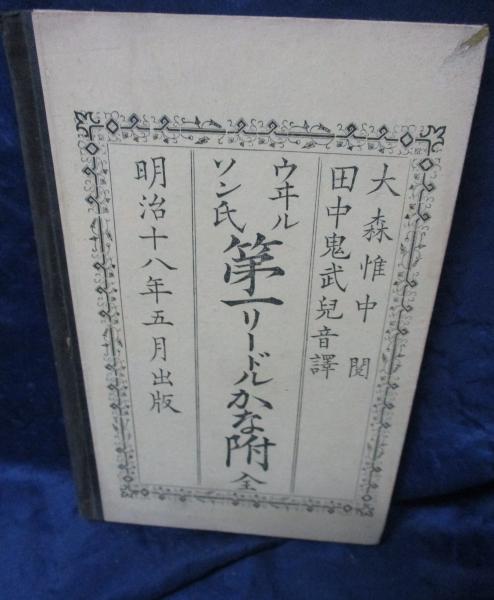 大森惟中 閲
田中鬼武兒音譯
ウヰル
ソン氏
第一リードルかな附 全
明治十八年五月出版